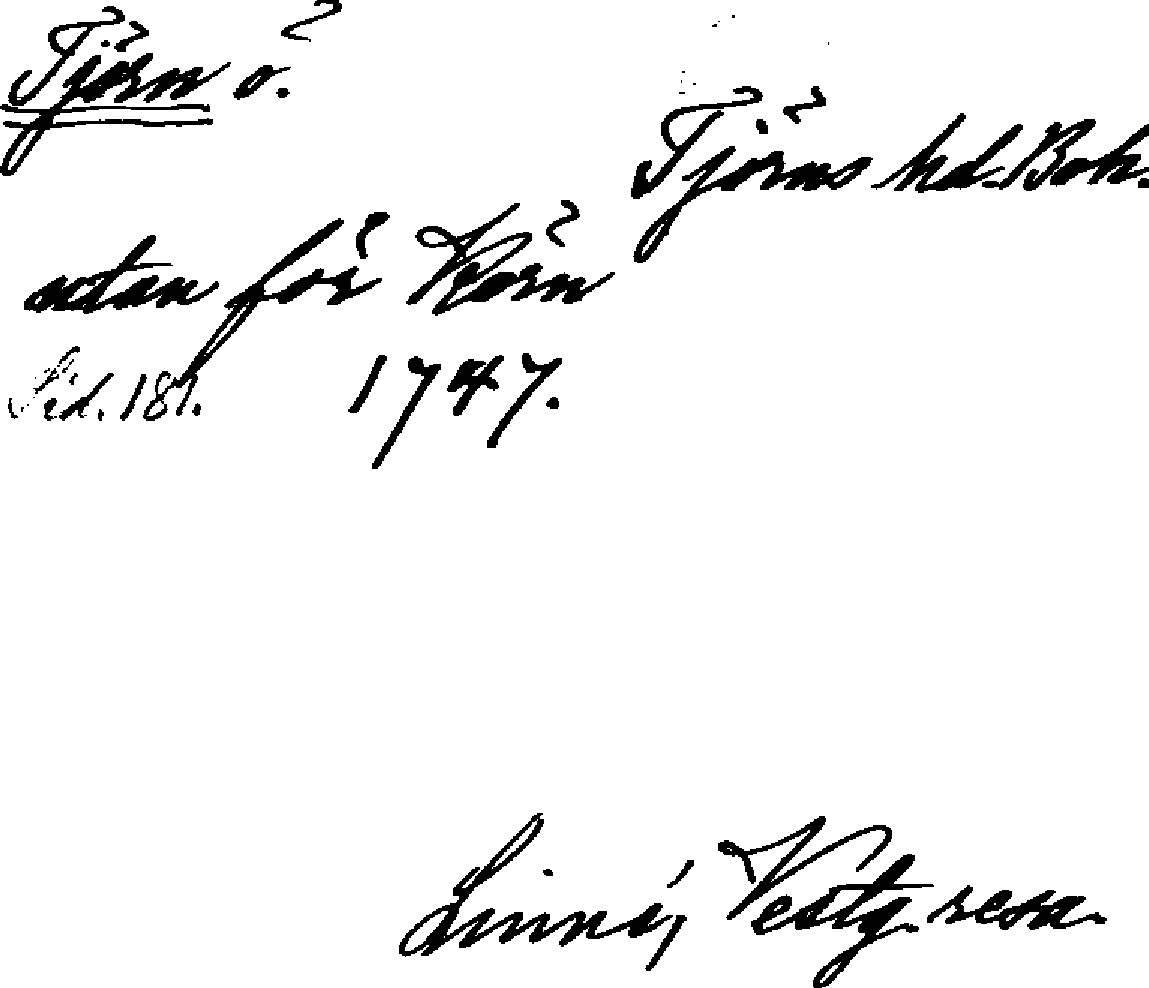 Tjörn ö.
Tjörns hd. Boh.
utan för Körn
Sid. 187. 1747.
Linné, Vestg. resa.